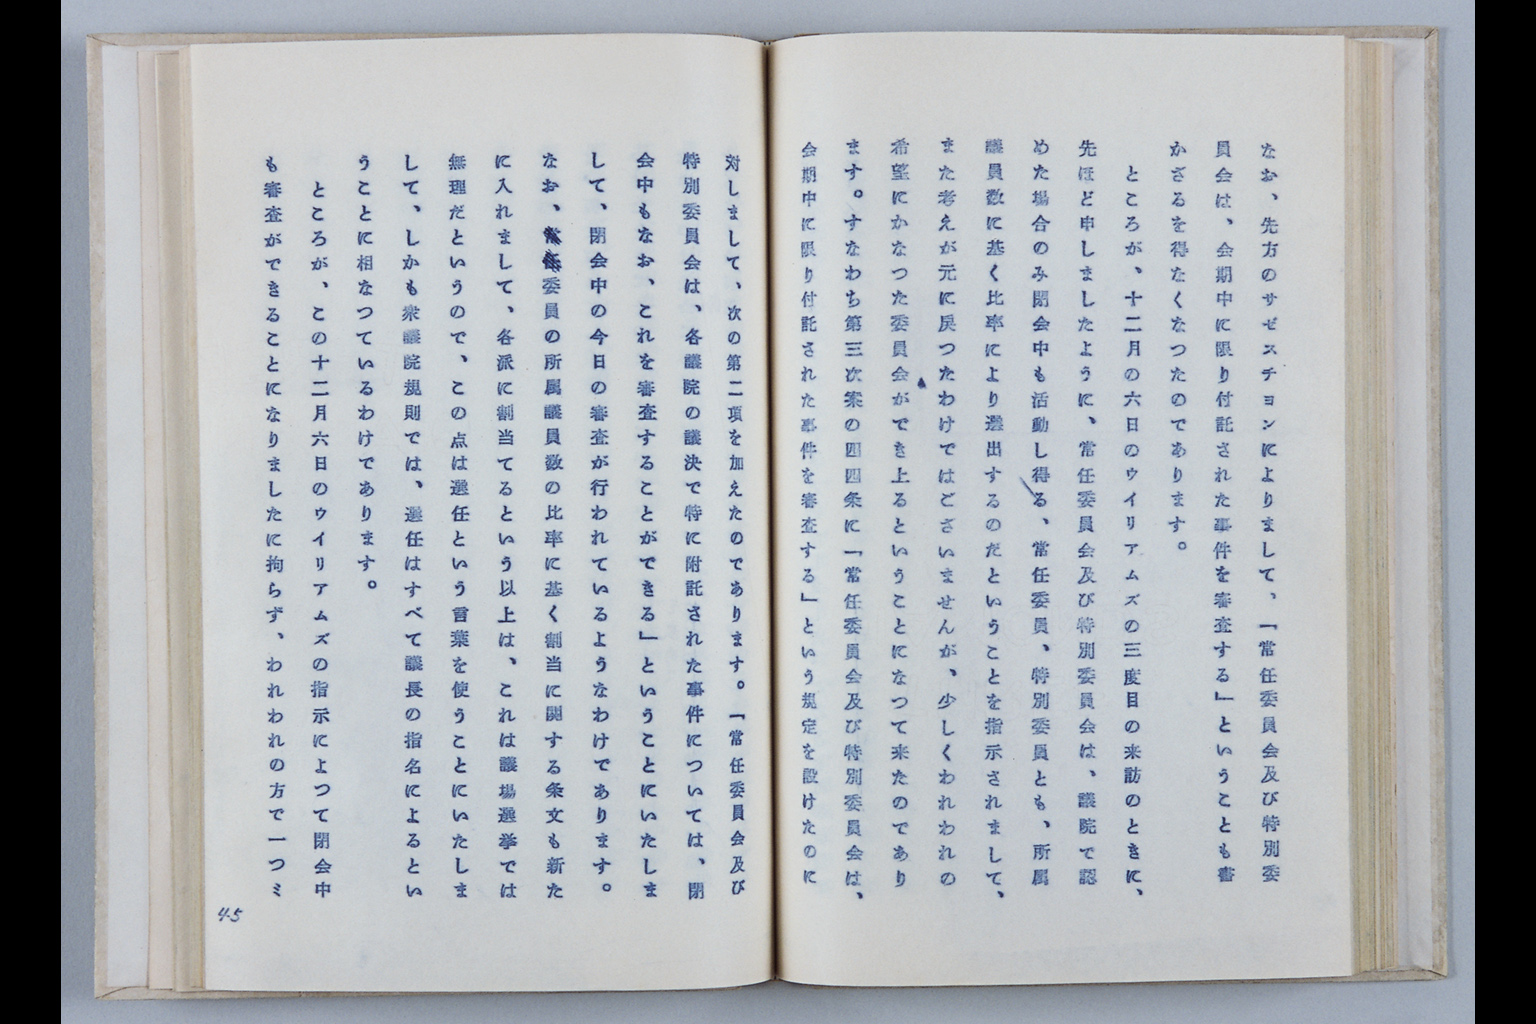 なお、先方のサゼスチョンによりまして、「常任委員会及び特別委
員会は、会期中に限り付託された事件を審査する」ということも書
かざるを得なくなつたのであります。
ところが、十二月の六日のウイリアムズの三度目の来訪のときに、
先ほど申しましたように、常任委員会及び特別委員会は、議院で認
めた場合のみ閉会中も活動し得る、常任委員、特別委員とも、所属
議員数に基く比率により選出するのだということを指示されまして、
また考えが元に戻つたわけではございませんが、少しくわれわれの
希望にかなつた委員会ができ上るということになつて来たのであり
ます。すなわち第三次案の四四条に「常任委員会及び特別委員会は、
会期中に限り付託された事件を審査する」という規定を設けたのに
対しまして、次の第二項を加えたのであります。「常任委員会及び
特別委員会は、各議院の議決で特に附託された事件については、閉
会中もなお、これを審査することができる」ということにいたしま
して、閉会中の今日の審査が行われているようなわけであります。
なお、委員の所属議員数の比率に基く割当に関する条文も新た
に入れまして、各派に割当てるという以上は、これは議場選挙では
無理だというので、この点は選任という言葉を使うことにいたしま
して、しかも衆議院規則では、選任はすべて議長の指名によるとい
うことに相なつているわけであります。
ところが、この十二月六日のウイリアムズの指示によつて閉会中
も審査ができることになりましたに拘らず、われわれの方で一つミ
45